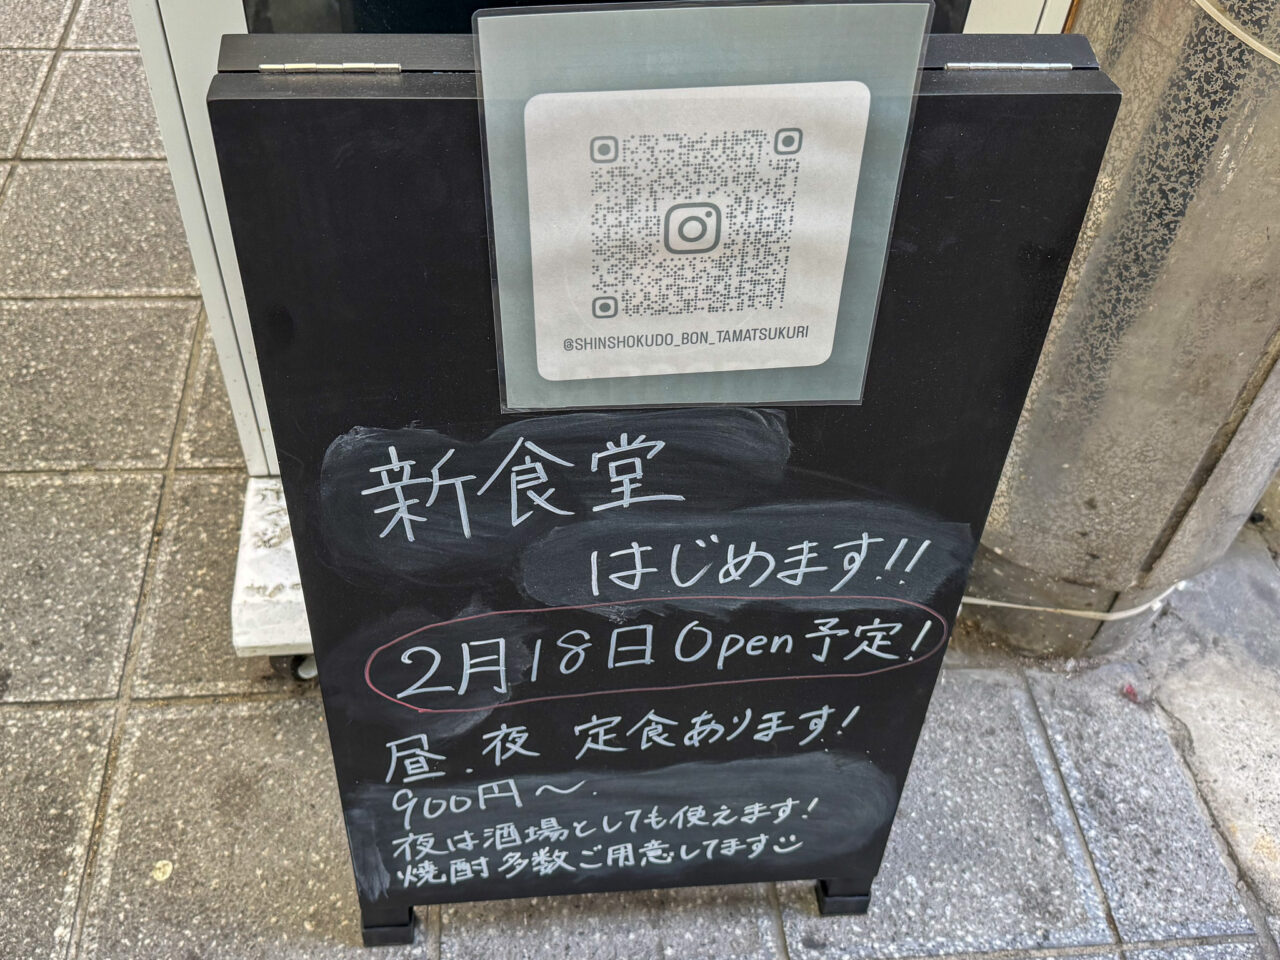 @SHINSHOKUDO_BON_TAMATSUKURI
新食堂
はじめます!!
2月18日Open予定!
昼.夜 定食あります!
900円〜.
夜は酒場としても使えます!
焼酎多数ご用意してます